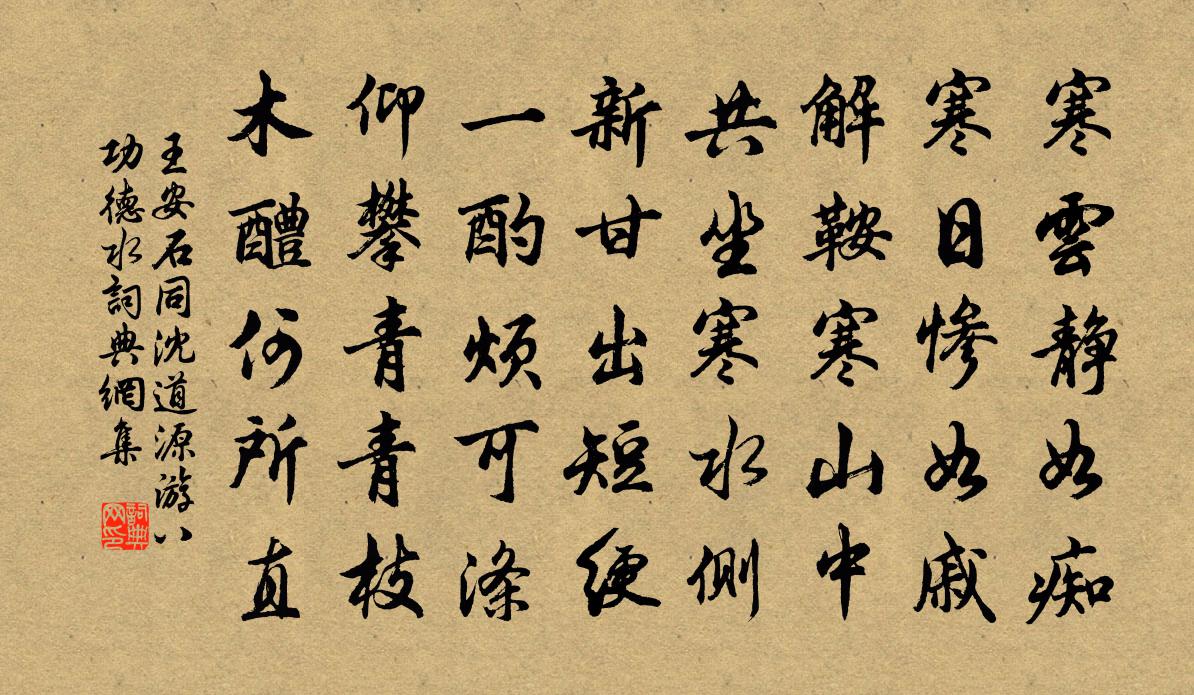 寒雲靜如痴
寒日慘如戚
解鞍寒山中
共坐寒水側
新甘出短綆
一酌煩可滌
仰攀青青枝
木醴何所直
王安石同沈道源游八
功德水詞典網集
詞典網印